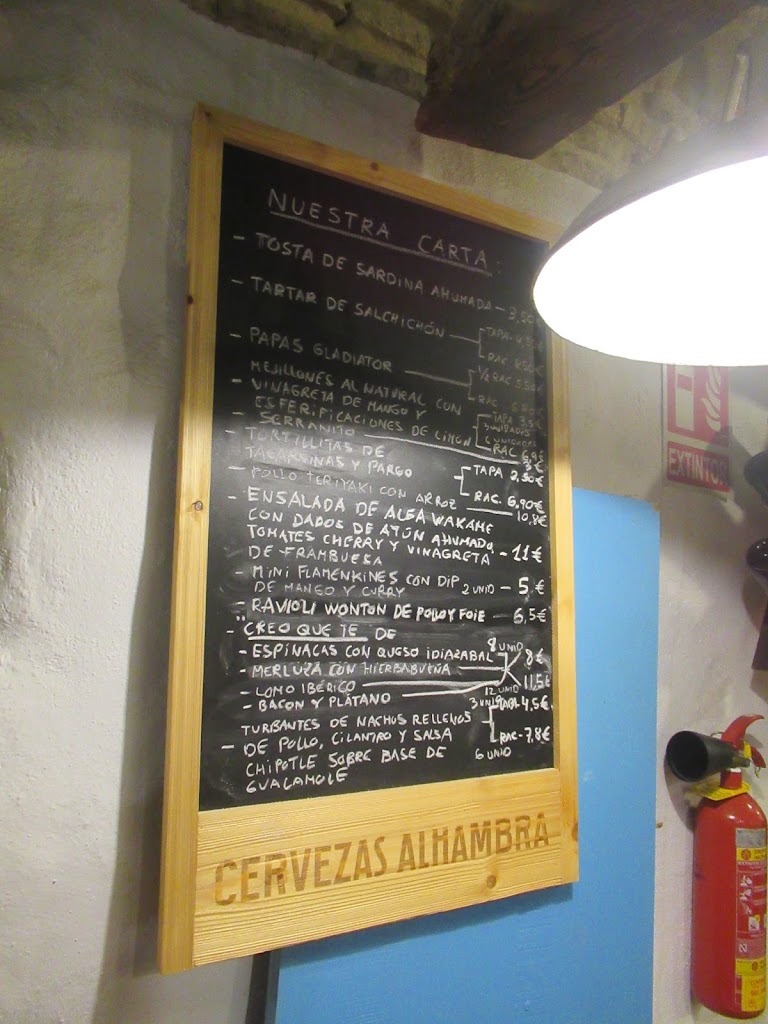 NUESTRA CARTA:
- TOSTA DE SARDINA AHUMADA - 3,5
- TARTAR DE SALCHICHÓN TAPA - 4,50€
RAC.
- PAPAS GLADIATOR 1/2 RAC 5,50
RAC.
- MEJILLONES AL NATURAL CON
VINAGRETA DE MANGO Y TAPA 3,5€
ESFERIFICACIONES DE LIMÓN 3 UNIDADES
RAC 6,9€
- SERRANITO 3€
- TORTILLITAS DE TAPA 2,50€
TAGARNINAS Y PARGO RAC. 6,90€
- POLLO TERIYAKI CON ARROZ 10,8€
- ENSALADA DE ALGA WAKAME
CON DADOS DE ATÚN AHUMADO
TOMATES CHERRY Y VINAGRETA - 11€
DE FRAMBUESA
- MINI FLAMENKINES CON DIP 2 UNID - 5€
DE MANGO Y CURRY
- RAVIOLI WONTON DE POLLO Y FOIE - 6,5€
- "CREO QUE TE DE
- ESPINACAS CON QUESO IDIAZABAL 8 UNID 8€
- MERLUZA CON HIERBABUENA
- LOMO IBÉRICO 12 UNID 11,5€
- BACON Y PLÁTANO
TURBANTES DE NACHOS RELLENOS 3 UNID TAPA - 4,5€
- DE POLLO, CILANTRO Y SALSA RAC - 7,8€
CHIPOTLE SOBRE BASE DE 6 UNID
GUACAMOLE
CERVEZAS ALHAMBRA
EXTINTOR